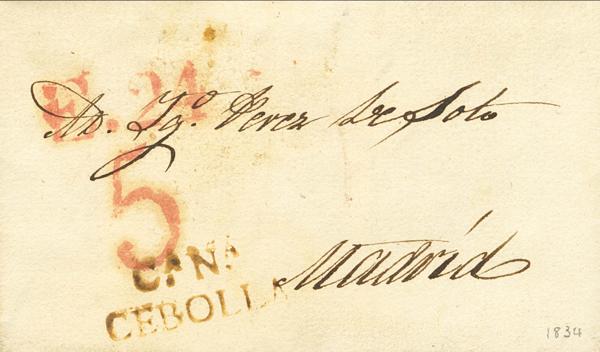 E. 24
Dn. Igo. Perez de Soto
5
Madrid
C.A N.A
CEBOLLA
1834